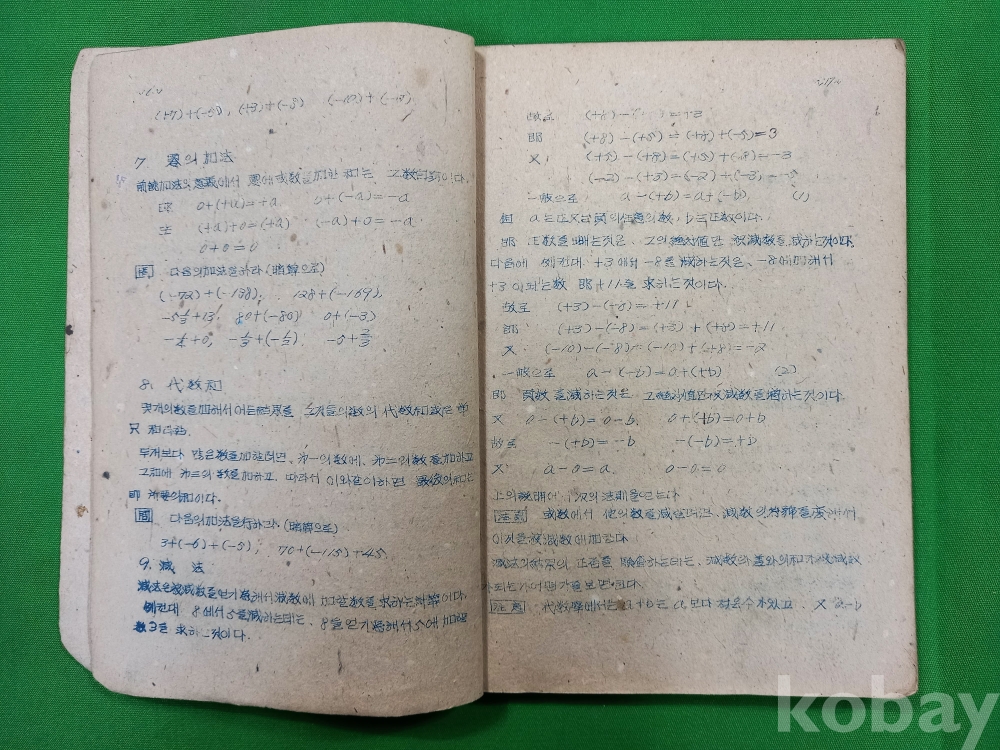 (+7)+(-5), (+3)+(-8) (-10)+(-10)
7 零의 加法
前述加法의 意義에서 零에 或數를 加한 和는 그 數와 같이다.
即 0+(+a)=+a, 0+(-a)=-a
(+a)+0=(+a) (-a)+0=-a
0+0=0
問 다음의 加法을 하라 (暗算으로)
(-72)+(-138), 128+(-169),
80+(-80) 0+(-3)
8. 代數和
몇개의 數를 加해서 어든 結果를 그것들의 數의 代數和 或는 單
只 和라 함.
두개보다 많은 數를 加할려면, 第一의 數에, 第二의 數를 加하고
그 和에 第三의 數를 加하고, 따라서 이와같이하면 最後의 和는
即 所要의 和이다.
問 다음의 加法을 行하라 (暗算으로)
3+(-6)+(-5), 70+(-115)+45.
9. 減 法
減法은 被減數를 얻기 爲해서 減數에 加할 數를 求하는 計算이다.
例컨대 8에서 5를 減하는데는, 8을 얻기 爲해서 5에 加할
數 3을 求하는 것이다.
故로 (+8)- =+3
即 (+8)-(+5)=(+8)+(-5)=3
又, (+5)-(+8)=(+5)+(-8)=-3
(-2)-(+3)=(-2)+(-3)=-5
一般으로 a-(+b)=a+(-b) (1)
但 a는 正又는 負의 任意의 數, b는 正數이다.
即 正數를 빼는것은, 그의 絶對値만 被減數를 減하는것이다.
다음에 例컨대 +3에서 -8을 減하는것은, -8에 加해서
+3이 되는 數 即 +11을 求하는것이다.
故로 (+3)-(-8)=+11
即 (+3)-(-8)=(+3)+(+8)=+11
又 (-10)-(-8)=(-10)+(+8)=-2
一般으로 a-(-b)=a+(+b) (2)
即 負數를 減하는것은, 그 絶對値만 被減數를 增하는것이다.
又 0-(+b)=0-b. 0+(+b)=0+b
故로 -(+b)=-b -(-b)=+b
又 a-0=a. 0-0=0
上의 說明에 依하여 次의 法則을 얻는다
法則 或數에서 他의 數를 減할려면, 減數의 符號를 變해서
이것을 被減數에 加한다.
減法의 結果의 正否를 驗算하는데는, 減數와 差와의 和가 被減數
가 되는가 어떤가를 보면 된다.
注意 代數學에서는 a+b는 a보다 적을수가 있고, 又 a-b
kobay